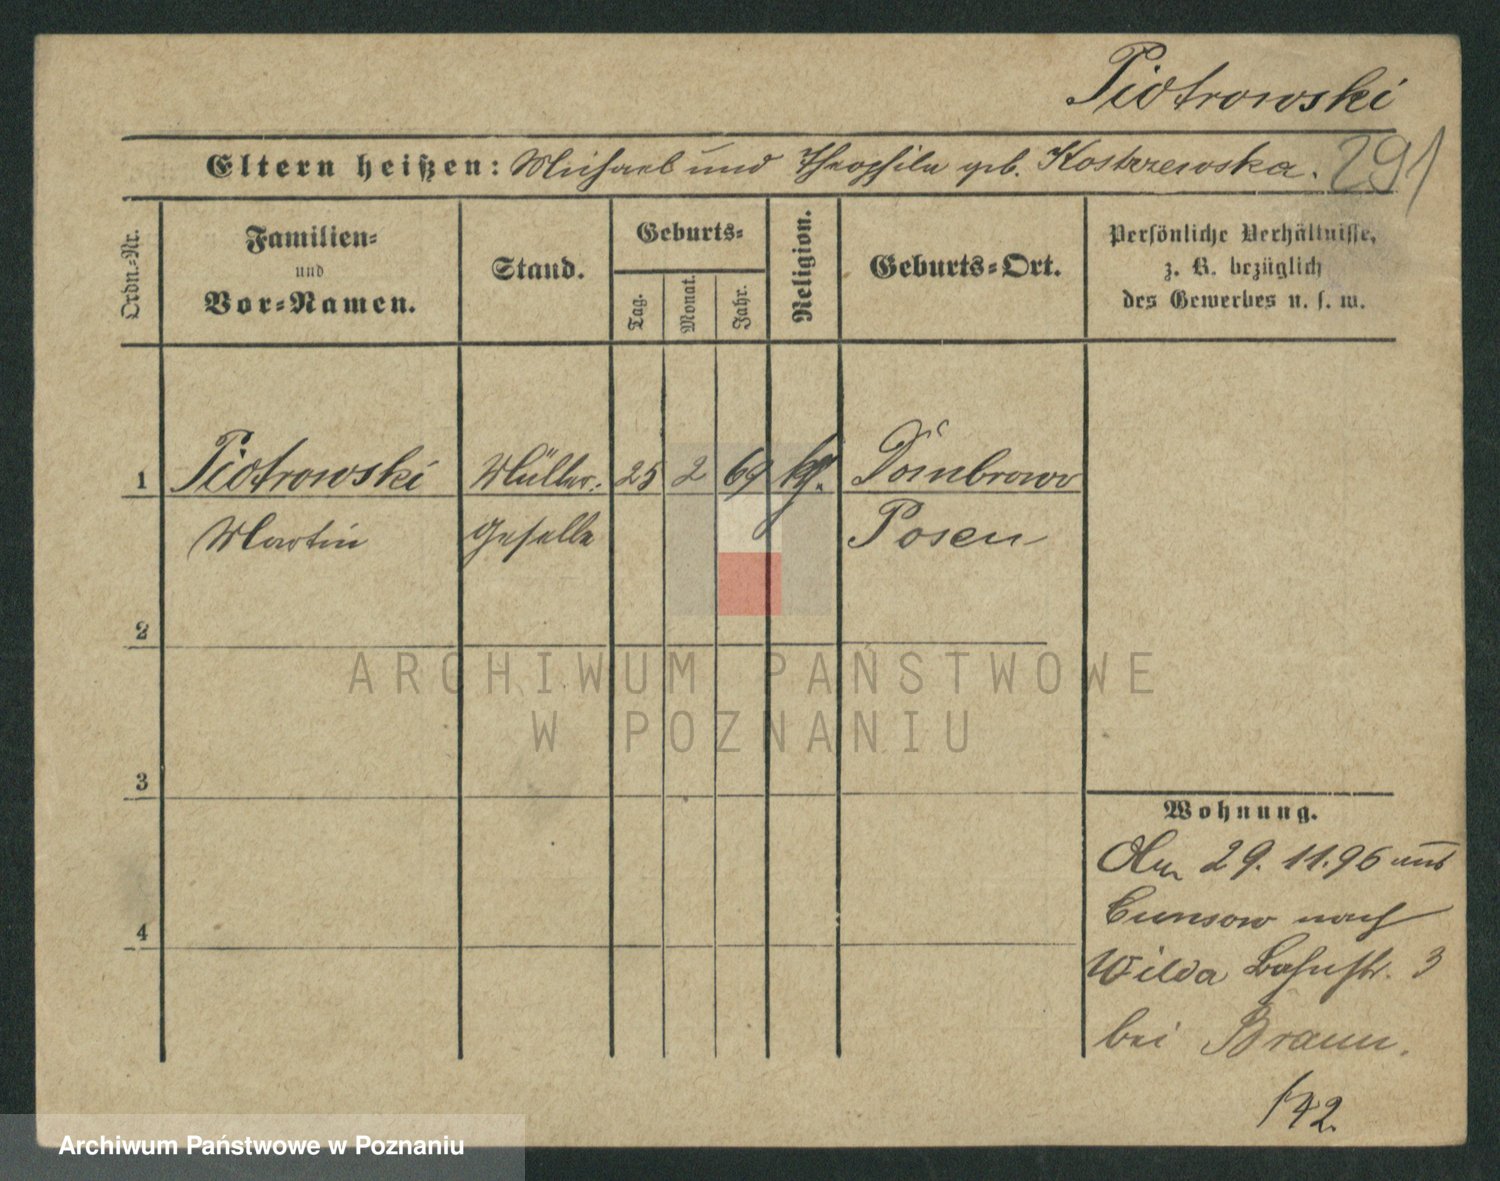 Piotrowski
Eltern heißen: Michael und Theophila geb. Kostrzewska. 291
Ordn.-Nr.
Familien-
und
Vor-Namen.
Stand.
Geburts-
Tag.
Monat.
Jahr.
Religion.
Geburts-Ort.
Persönliche Verhältnisse,
z. B. bezüglich
des Gewerbes u. s. w.
1 Piotrowski Müller- 25 2 69 kth. Dombrowo
Martin geselle Posen
2
3
4
ARCHIWUM PAŃSTWOWE
W POZNANIU
Wohnung.
Am 29. 11. 96 aus
nach
Wilda Bahnstr. 3
bei Braun.
142.
Archiwum Państwowe w Poznaniu